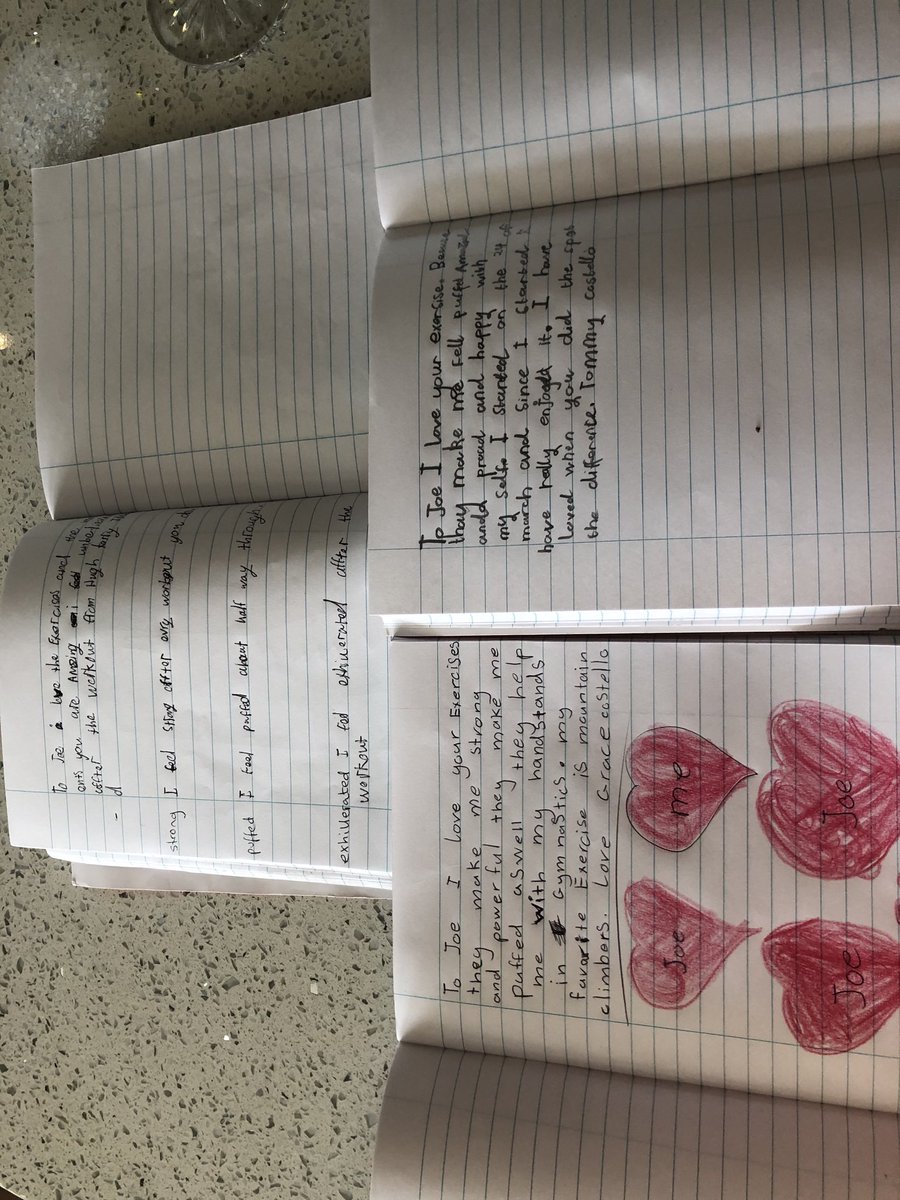 To Joe I love the Exercises and the
ants you are Amazing i feel
after the workout from Hugh
strong I feel strong after evry workout you
puffed I feel puffed about half way through
exhillerated I feel exhillerated affter the
workout
To Joe I love your exersise.
thay make me fell puffed
andd proud and happy with
my self. I started on the 24 of
march and since I started
have relly enjoged it. I have
loved when you did the spot
the difference. Tommy costello
To Joe I love your Exercises
they make me strong
and powerful they make me
puffed aswell they help
me with my handstands
in Gymnastics. my
favarite Exercise is mountain
climbers. Love Grace costello
Joe
me
Joe
Joe